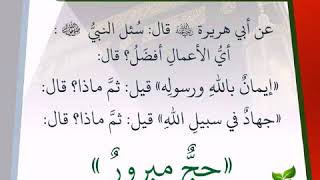 عن أبي هريرة ﵁ قال: سُئل النبيُّ ﷺ :
أيُّ الأعمالِ أفضَلُ؟ قال:
«إيمانٌ باللهِ ورسولِه» قيل: ثمَّ ماذا؟ قال:
«جهادٌ في سبيلِ اللهِ» قيل: ثمَّ ماذا؟ قال:
«حجٌّ مبرورٌ »